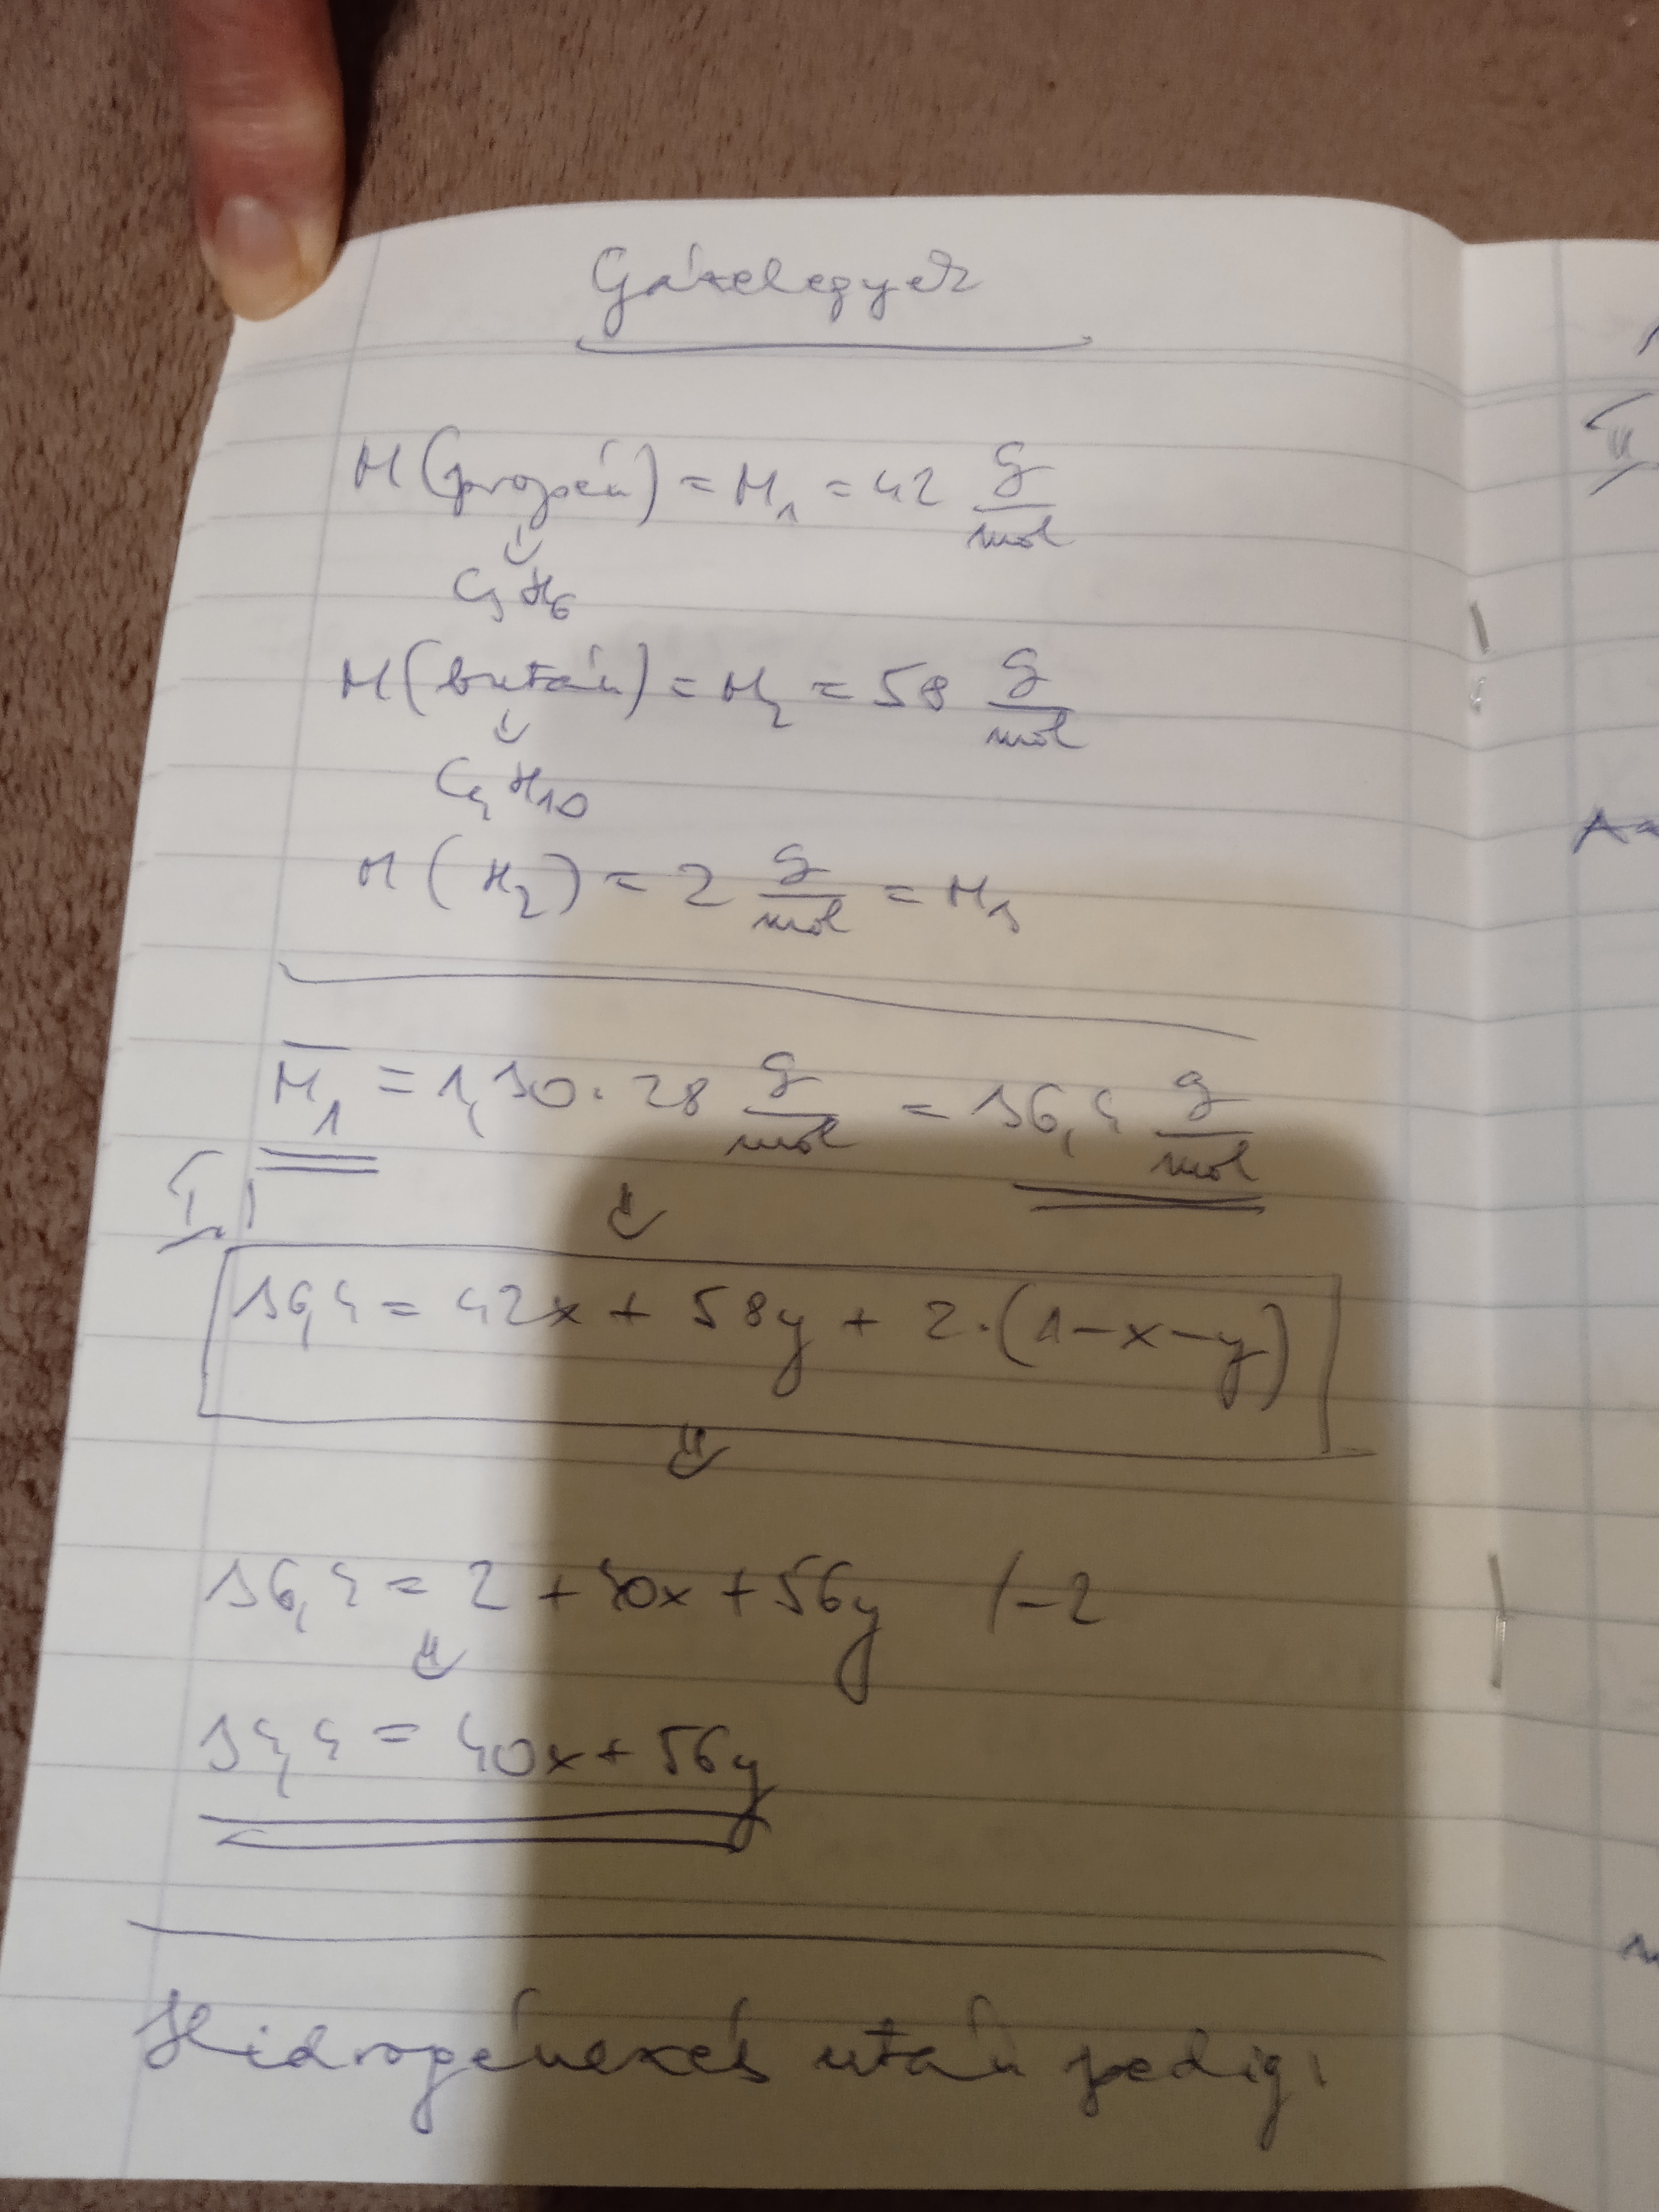 Gázelegyek
M(propén) = M₁ = 42 g/mol
⇓
C₃H₆
M(bután) = M₂ = 58 g/mol
⇓
C₄H₁₀
M(H₂) = 2 g/mol = M₃
M̅₁ = 1,30 · 28 g/mol = 36,4 g/mol
I.
⇓
36,4 = 42x + 58y + 2·(1-x-y)
⇓
36,4 = 2 + 40x + 56y /-2
⇓
34,4 = 40x + 56y
Hidrogénezés után pedig:
II.